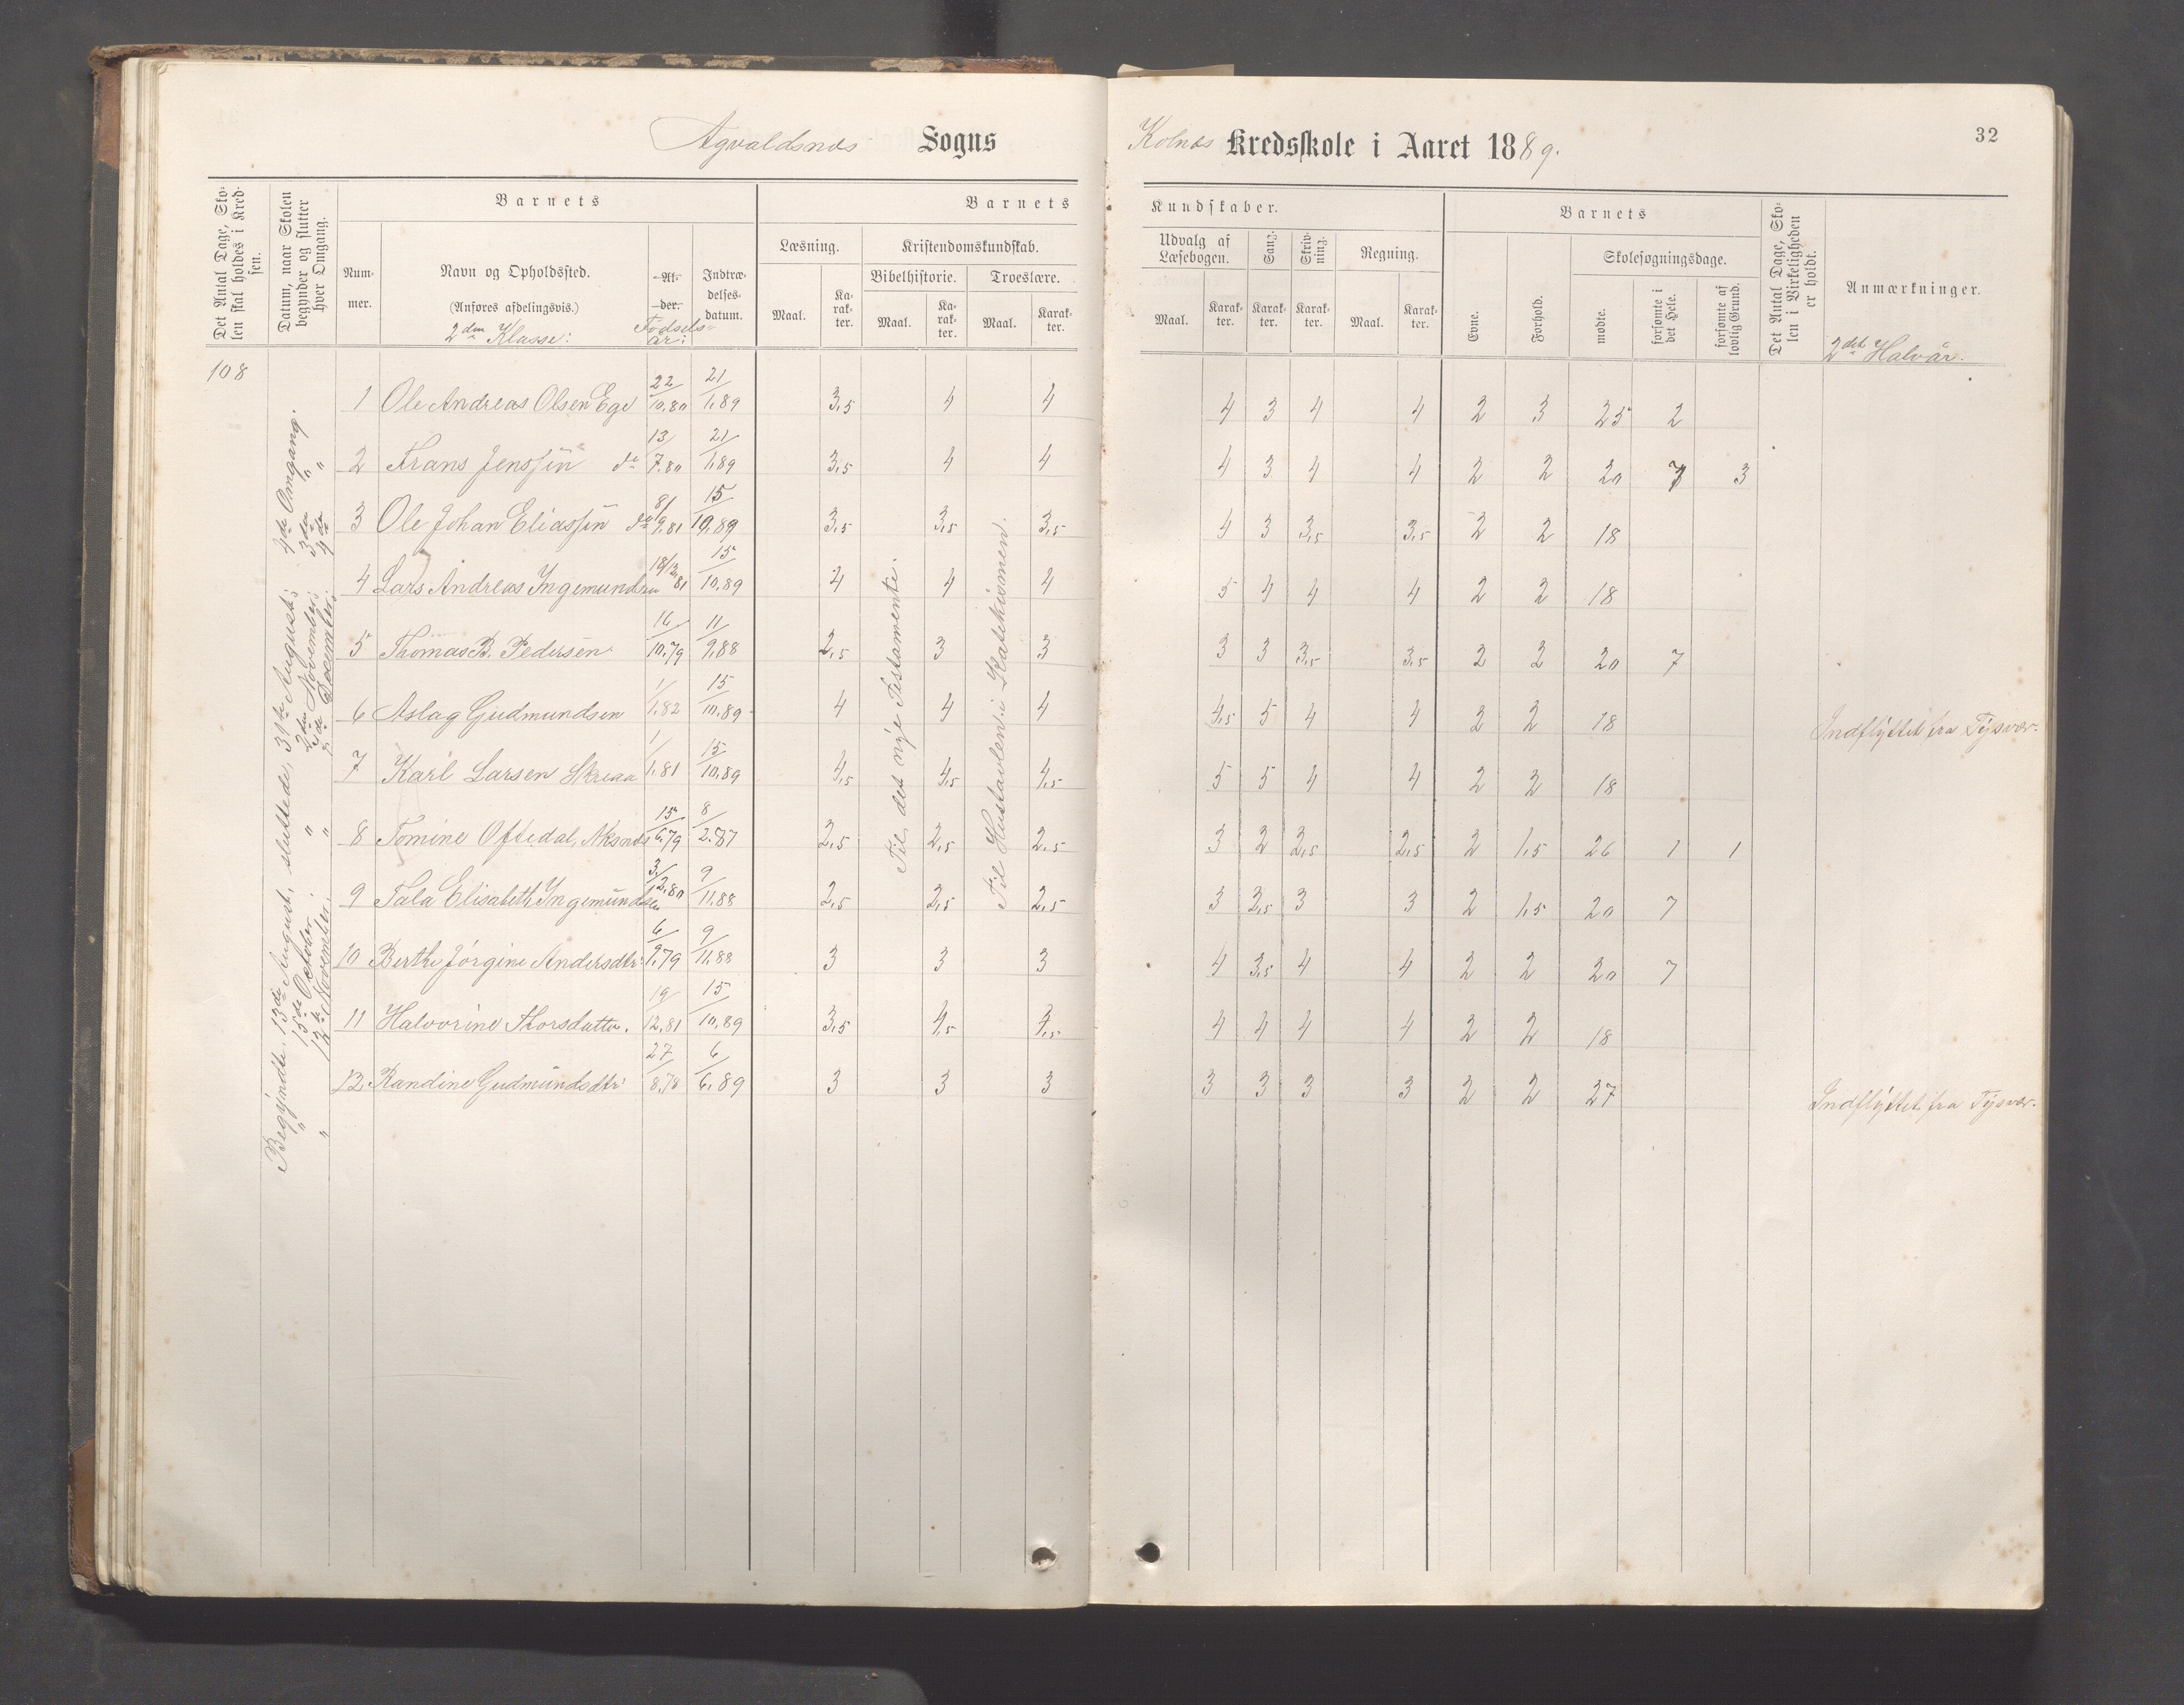 Agvaldsnes Sogns Kolnes Kredsskole i Aaret 1889. 32
Det Antal Dage, Skolen skal holdes i Kredsen.
Datum, naar Skolen begynder og slutter hver Omgang.
Barnets
Nummer.
Navn og Opholdssted.
(Anføres afdelingsvis.)
2den Klasse:
Alder.
Fødselsår:
Indtrædelsesdatum.
Barnets Kundskaber.
Læsning.
Maal. Karakter.
Kristendomskundskab.
Bibelhistorie. Troeslære.
Maal. Karakter. Maal. Karakter.
Udvalg af Læsebogen.
Maal. Karakter.
Sang. Karakter.
Skrivning. Karakter.
Regning.
Maal. Karakter.
Barnets
Evne. Forhold.
Skolesøgningsdage.
mødte. forsømte i det Hele. forsømte af lovlig Grund.
Det Antal Dage, Skolen i Virkeligheden er holdt.
Anmærkninger.
2det Halvår.
108
Begyndte 13de August, sluttede 31te August;
" 15de October " 2den November; 3den "
" 12te November; " December;
Til det nye Testamente.
Til Hustavlen i Katekismen.
1 Ole Andreas Olsen Ege 22/10.80 21/1.89 3,5 4 4 4 3 4 4 2 3 25 2
2 Frans Jenssen do 13/7.80 21/1.89 3,5 4 4 4 3 4 4 2 2 20 7 3
3 Ole Johan Eliassen do 15/10.89 3,5 3,5 3,5 4 3 3,5 3,5 2 2 18
4 Lars Andreas Ingemundsen 18/12 81 15/10.89 4 4 4 5 4 4 4 2 2 18
5 Thomas B. Pedersen 16/10.79 11/9.88 2,5 3 3 3 3 3,5 3,5 2 2 20 7
6 Aslag Gudmundsen 1/1.82 15/10.89 4 4 4 4,5 5 4 4 2 2 18 Indflyttet fra Tysvær.
7 Karl Larsen Skreaa 1/1.81 15/10.89 4,5 4,5 4,5 5 5 4 4 2 2 18
8 Tomine Oftedal, Aksnes 15/6.79 8/2.87 2,5 2,5 2,5 3 2 2,5 2,5 2 1,5 26 1 1
9 Tala Elisabeth Ingemundsen 3/12.80 9/11.88 2,5 2,5 2,5 3 2,5 3 3 2 1,5 20 7
10 Berthe Jørgine Andersdtr. 6/9.79 9/11.88 3 3 3 4 3,5 4 4 2 2 20 7
11 Halvorine Thorsdatter. 19/12.81 15/10.89 3,5 4,5 4,5 4 4 4 4 2 2 18
12. Randine Gudmundsdtr. 27/8.78 6/6.89 3 3 3 3 3 3 3 2 2 27 Indflyttet fra Tysvær.